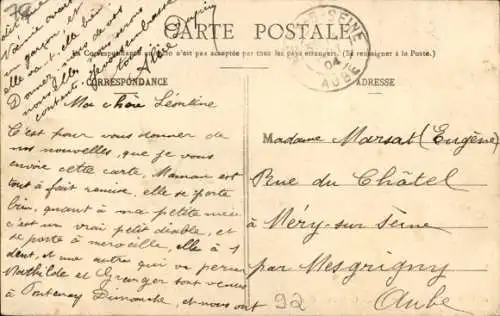 CARTE POSTALE
La Correspondance au recto n'est pas acceptée par tous les pays étrangers. (Se renseigner à la Poste.)
CORRESPONDANCE
ADRESSE
Ma chère Léontine
C'est pour vous donner de
nos nouvelles, que je vous
envoie cette carte, Maman est
tout à fait remise, elle se porte
bien, quant à ma petite nièce
c'est un vrai petit diable, et
se porte à merveille, elle a 1
dent, et une autre qui va percer
Mathilde et Granger sont venus
à Fontenay Dimanche, et nous ont
un garçon et
elle va-t-elle bien
Donnez-nous de vos
nous serons
content. Je vous embrasse
tous
Alice
Madame Marsat (Eugène)
Rue du Châtel
à Méry-sur Seine
par Mesgrigny
Aube
SEINE
04
AUBE
92